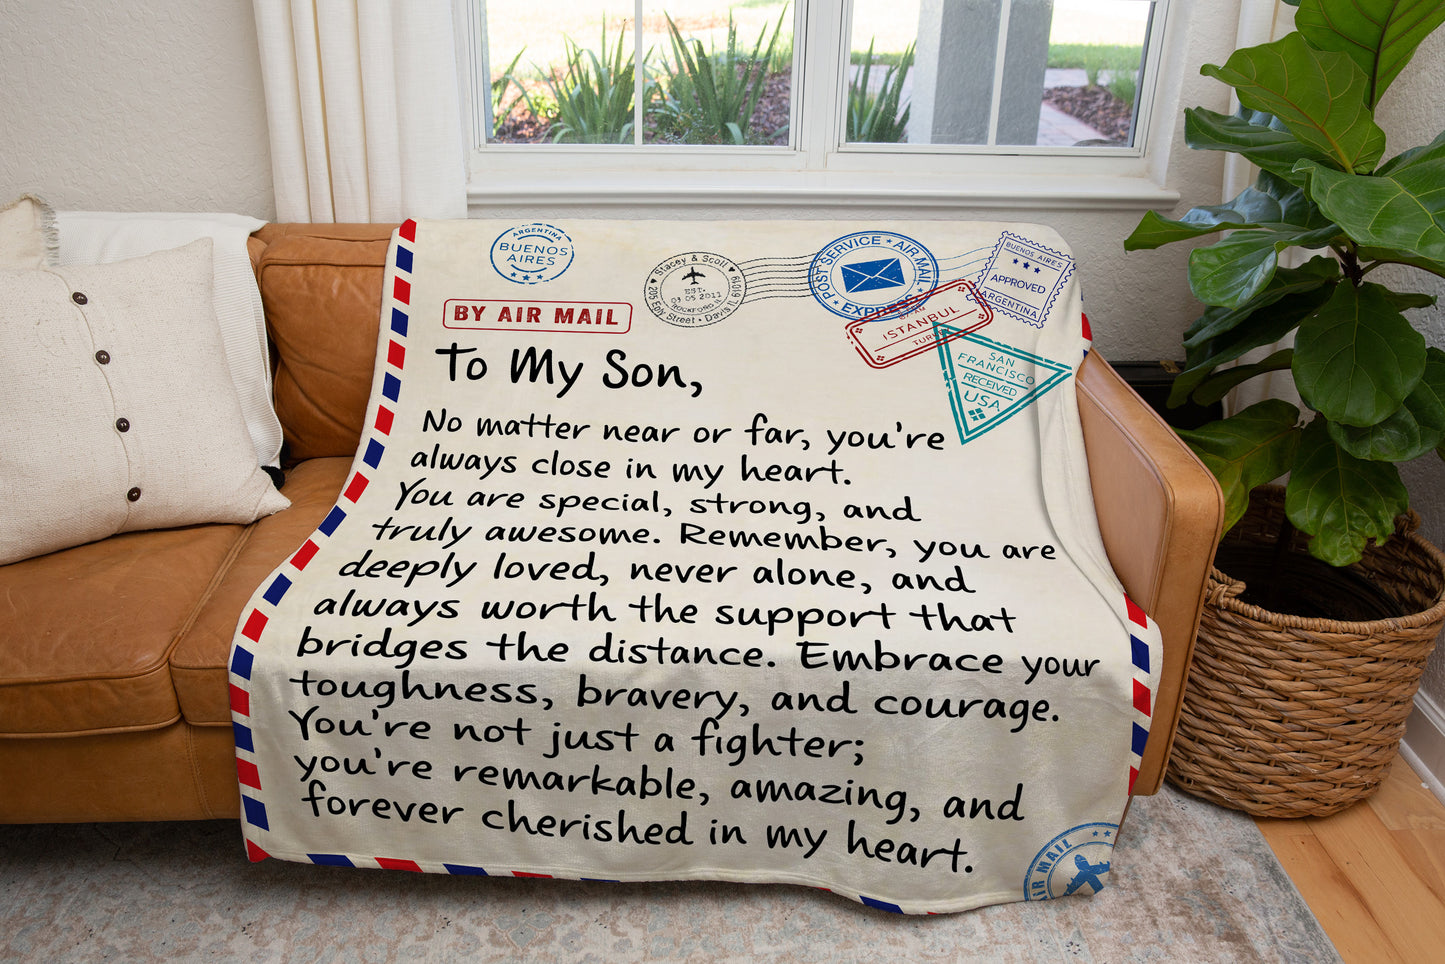 ARGENTINA
BUENOS
AIRES
BY AIR MAIL
Stacey & Scott
EST.
03 05 2011
ROCKFORD IL
POST SERVICE ★ AIR MAIL
EXPRESS
BUENOS AIRES
APPROVED
ARGENTINA
ISTANBUL
SAN
FRANCISCO
RECEIVED
USA
To My Son,
No matter near or far, you're
always close in my heart.
You are special, strong, and
truly awesome. Remember, you are
deeply loved, never alone, and
always worth the support that
bridges the distance. Embrace your
toughness, bravery, and courage.
You're not just a fighter;
you're remarkable, amazing, and
forever cherished in my heart.
AIR MAIL